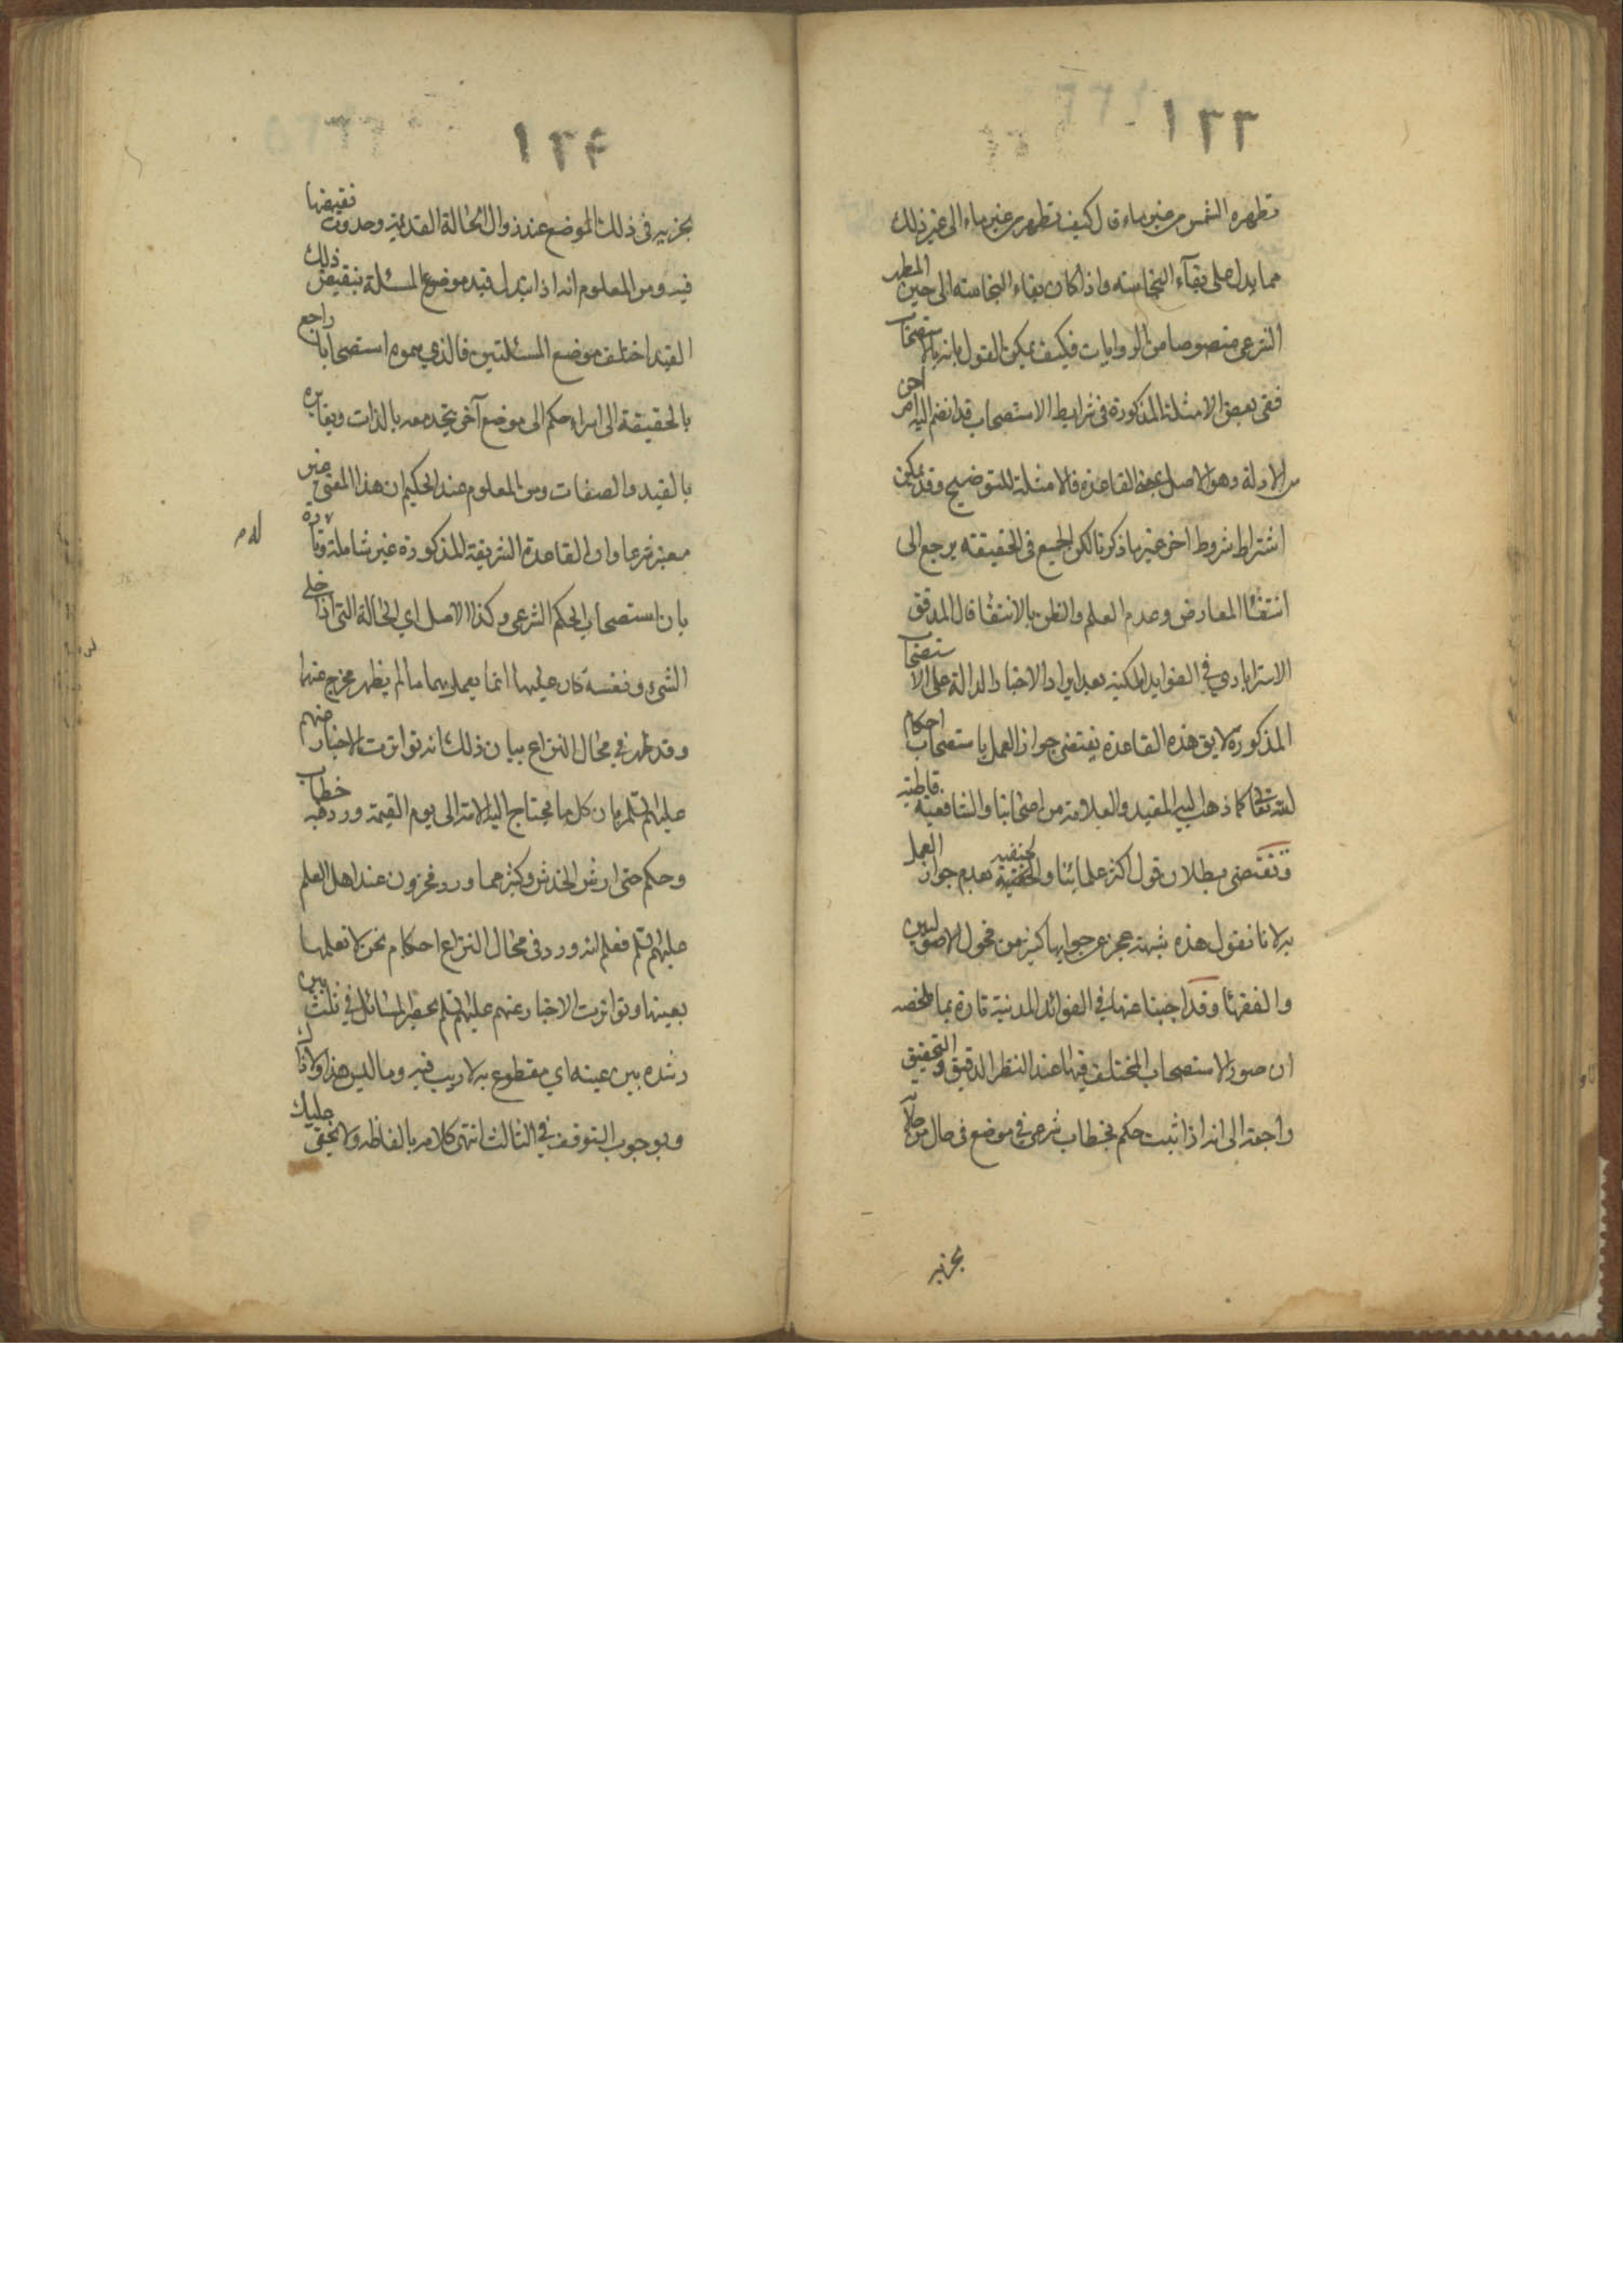 ١٣٣
تطهره الشمس من غير ماء قال كيف تطهر من غير ماء الى غير ذلك
مما يدل على بقآء النجاسته واذا كان بقاء النجاسته الى حين المطهر
الشرعى منصوصا من الروايات فكيف يمكن القول بانه بالاستصحاب
ففى بعض الامثلة المذكورة فى شرايط الاستصحاب قد انضم اليه امر اخر
من الادلة وهو الاصل بمعنى القاعدة فالامثلة للتوضيح وقد يمكن
اشتراط شروط اخر غير ما ذكرنا لكن الجميع فى الحقيقته يرجع الى
انتفاا المعارض وعدم العلم والظن بالانتفا قال المدقق
الاسترابادي في الفوايد المكية بعد ايراد الاخبار الدالة على الاستصحاب
المذكورة لا يق هذه القاعدة يقتضى جواز العمل باستصحاب احكام
لله تعا كما ذهب اليه المفيد والعلامة من اصحابنا والشافعية قاطبة
وتقتضى بطلان قول اكثر علمائنا والحنفية بعدم جواز العمل
به لانا نقول هذه شبهة عجز عن جوابها كثير من فحول الاصوليين
والفقهاا وقد اجبنا عنها في الفوائد المدنية تارة بما ملخصه
ان صور الاستصحاب المختلف فيها عند النظر الدقيق والتحقيق
راجعة الى انه اذا ثبت حكم بخطاب شرعى في موضع فى حال من حالاته
بجزيه
١٣٤
بجزيه فى ذلك الموضع عند زوال الحالة القديمة وحدوث نقيضها
فيه ومن المعلوم انه اذا تبدل قيد موضوع المسئلة بنقيض ذلك
القيد اختلف موضع المسئلتين فالذي سموه استصحابا راجع
بالحقيقة الى اسراء حكم الى موضع آخر يتحد معه بالذات ويغايره
بالقيد والصفات ومن المعلوم عند الحكيم ان هذا المعنى غير
معتبر شرعا وان القاعدة الشريفة المذكورة غير شاملة له وتارة
بان استصحاب الحكم الشرعى وكذا الاصل اي الحالة التى اذا خلى
الشىء ونفسه كان عليها انما يعمل بهما ما لم يظهر مخرج عنها
وقد ظهر في محال النزاع بيان ذلك انه تواترت الاخبار عنهم
عليهم السلم بان كل ما يحتاج اليه الامة الى يوم القيمة ورد فيه خطاب
وحكم حتى ارش الخدش وكثير مما ورد مخزون عند اهل العلم
عليهم السلم فعلم انه ورد فى محال النزاع احكام نحن لا نعلمها
بعينها وتواترت الاخبار عنهم عليهم السلم بحصر المسائل في ثلث بين
رشده بين غيه اي مقطوع به لا ريب فيه وما ليس هذا ولا ذاك
وبوجوب التوقف في الثالث انتهى كلامه بالفاظه ولا يخفى عليك